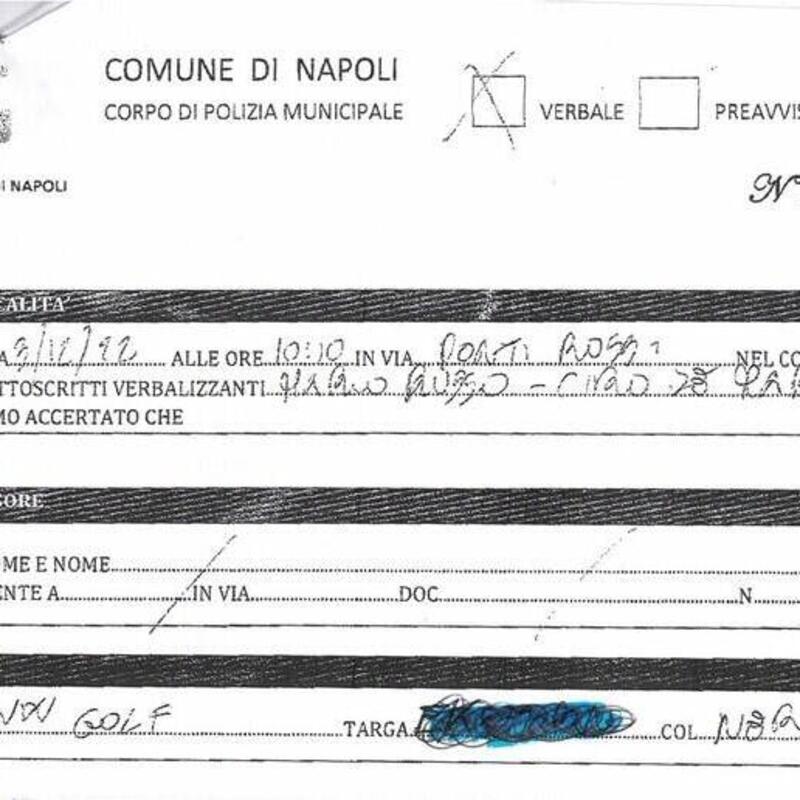 COMUNE DI NAPOLI
CORPO DI POLIZIA MUNICIPALE
VERBALE PREAVVIS
DI NAPOLI
N°
CALITA'
A ALLE ORE 10:10 IN VIA PONTI ROSSI NEL CO
TTOSCRITTI VERBALIZZANTI MARIO RUSSO - CIRO DE
MO ACCERTATO CHE
SORE
OME E NOME
ENTE A IN VIA DOC N
VW GOLF TARGA COL NER